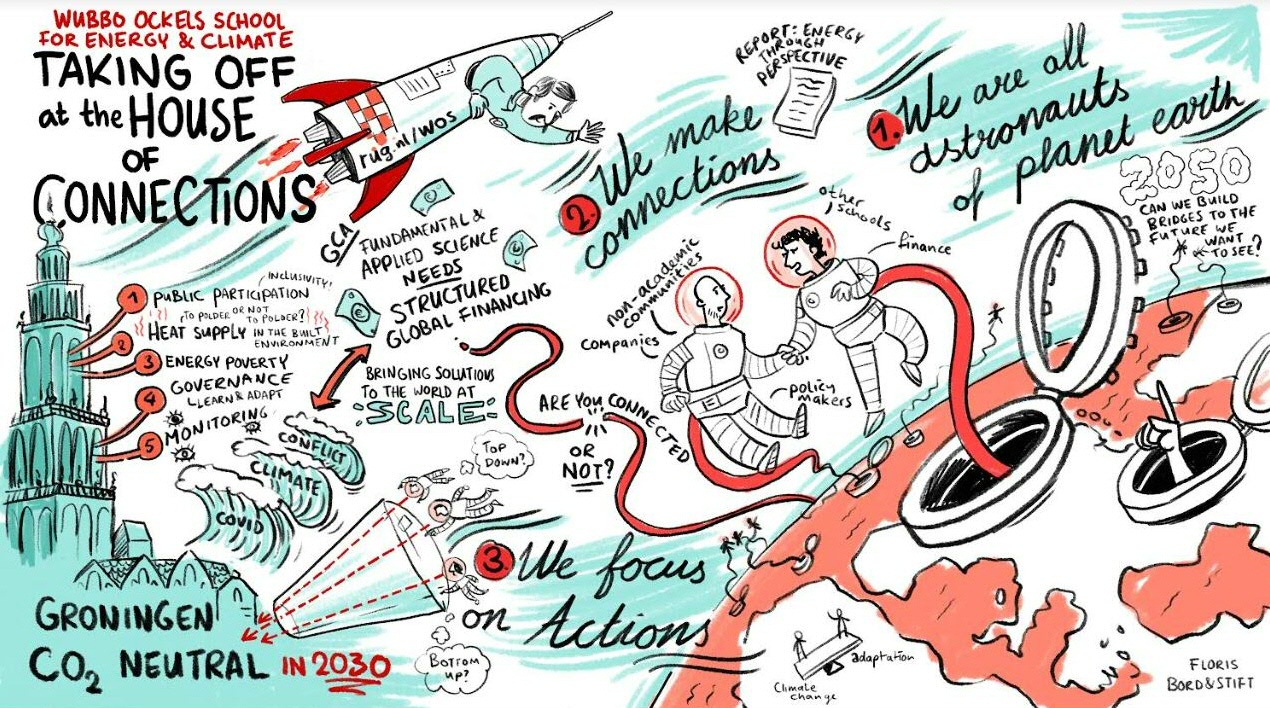 WUBBO OCKELS SCHOOL
FOR ENERGY & CLIMATE
TAKING OFF
at the HOUSE
OF
CONNECTIONS
rug.nl/wos
REPORT: ENERGY
THROUGH
PERSPECTIVE
1. We are all
astronauts
of planet earth
2050
CAN WE BUILD
BRIDGES TO THE
FUTURE WE
WANT
TO SEE?
2. We make
connections
other
schools
finance
non-academic
communities
companies
policy
makers
GCA
FUNDAMENTAL &
APPLIED SCIENCE
NEEDS
STRUCTURED
GLOBAL FINANCING
INCLUSIVITY!
1 PUBLIC PARTICIPATION
TO POLDER OR NOT
TO POLDER?
2 HEAT SUPPLY IN THE BUILT
ENVIRONMENT
3 ENERGY POVERTY
4 GOVERNANCE
LEARN & ADAPT
5 MONITORING
BRINGING SOLUTIONS
TO THE WORLD AT
SCALE
CONFLICT
CLIMATE
COVID
ARE YOU CONNECTED
OR
NOT?
TOP
DOWN?
BOTTOM
UP?
3. We focus
on Actions
GRONINGEN
CO2 NEUTRAL IN 2030
adaptation
Climate
change
FLORIS
BORD&STIFT